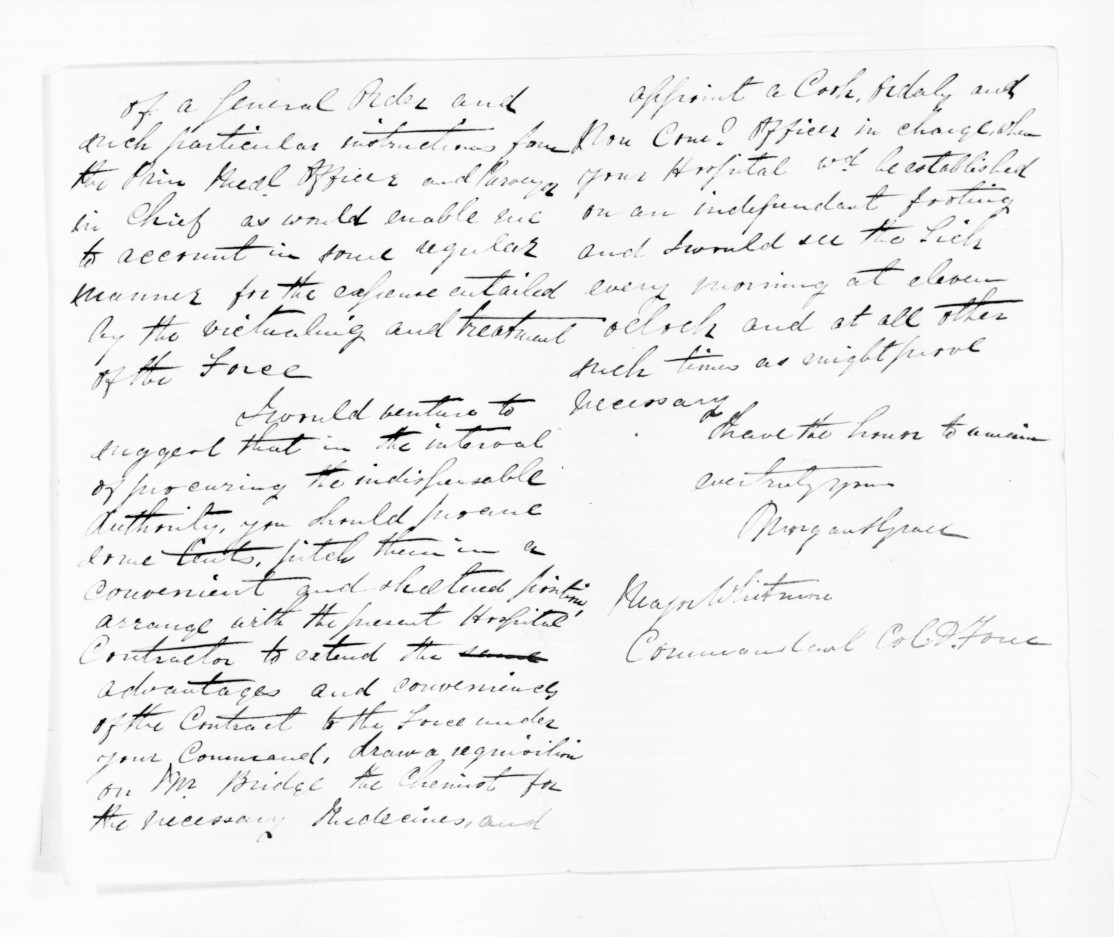 of a General Order and
such particular instructions from
the Prin Medl Officer and Purveyor
in Chief as would enable me
to account in some regular
manner for the expense entailed
by the victualing and treatment
of the Force
I would venture to
suggest that in the interval
of procuring the indispensable
Authority, you should procure
some tents, pitch them in a
convenient and sheltered position,
arrange with the present Hospital
Contractor to extend the same
advantages and conveniences
of the Contract to the Force under
your Command, draw a requisition
on Mr. Bridge the Chemist for
the necessary Medecines, and
appoint a Cook, Ordaly and
Non Comd Officer in charge, when
your Hospital wd be established
on an independant footing
and I would see the Sick
every morning at eleven
oclock and at all other
such times as might prove
necessary
I have the honor to remain
ever truly yours
Morgan S Grace
Major Whitmore
Commandant Col. D. Force